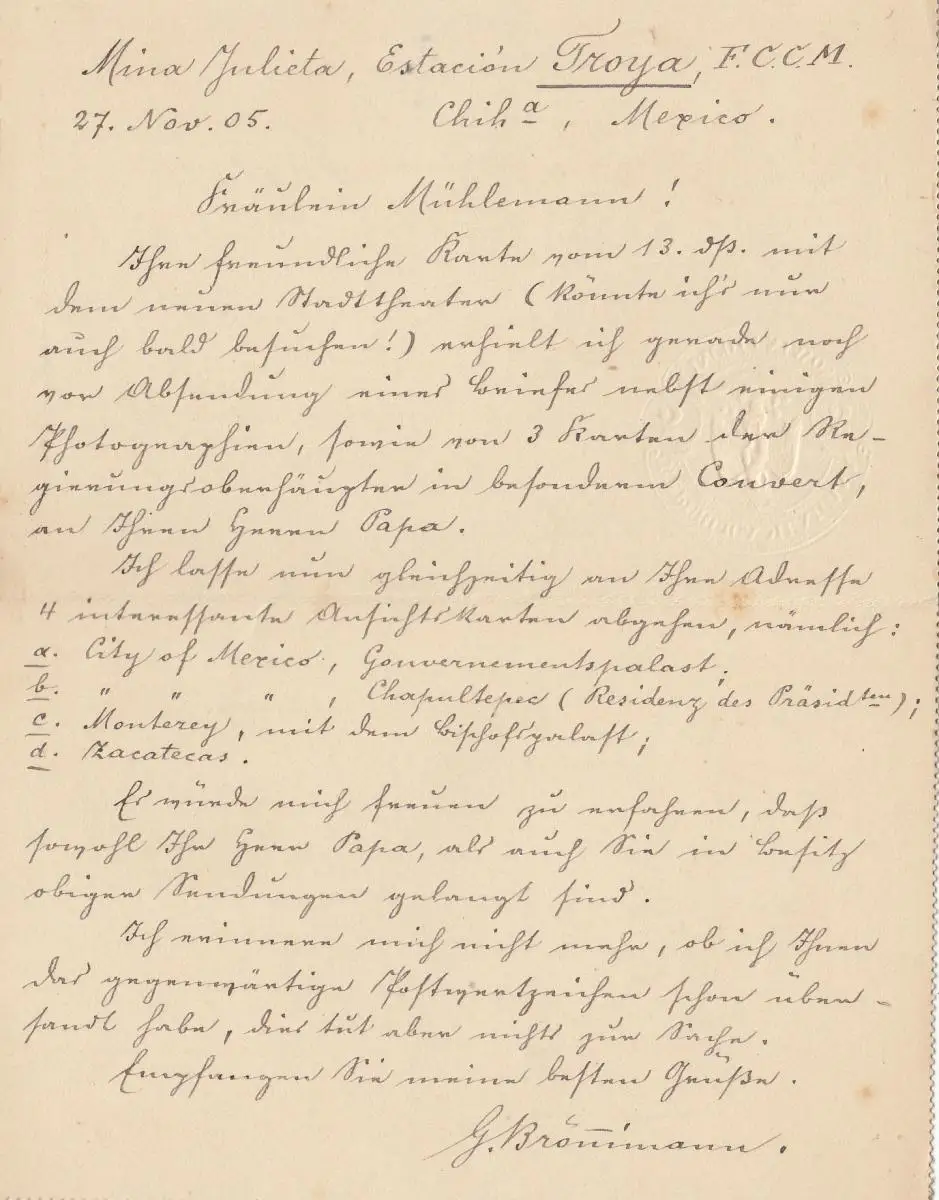 Mina Julieta, Estación Troya, F.C.C.M.
27. Nov. 05. Chihª, Mexico.
Fräulein Mühlemann!
Ihre freundliche Karte vom 13. dß. mit
dem neuen Stadttheater (könnte ich's nur
auch bald besuchen!) erhielt ich gerade noch
vor Absendung eines Briefes nebst einigen
Photographien, sowie von 3 Karten der Re-
gierungsoberhäupter in besonderm Couvert,
an Ihren Herrn Papa.
Ich lasse nun gleichzeitig an Ihre Adresse
4 interessante Ansichtskarten abgehen, nämlich:
a. City of Mexico, Gouvernementspalast;
b. " " " , Chapultepec (Residenz des Präsidten);
c. Monterey, mit dem Bischofspalast;
d. Zacatecas.
Es würde mich freuen zu erfahren, daß
sowohl Ihr Herr Papa, als auch Sie in Besitz
obiger Sendungen gelangt sind.
Ich erinnere mich nicht mehr, ob ich Ihnen
das gegenwärtige Postwertzeichen schon über-
sandt habe, dies tut aber nichts zur Sache.
Empfangen Sie meine besten Grüße.
G. Brönnimann.